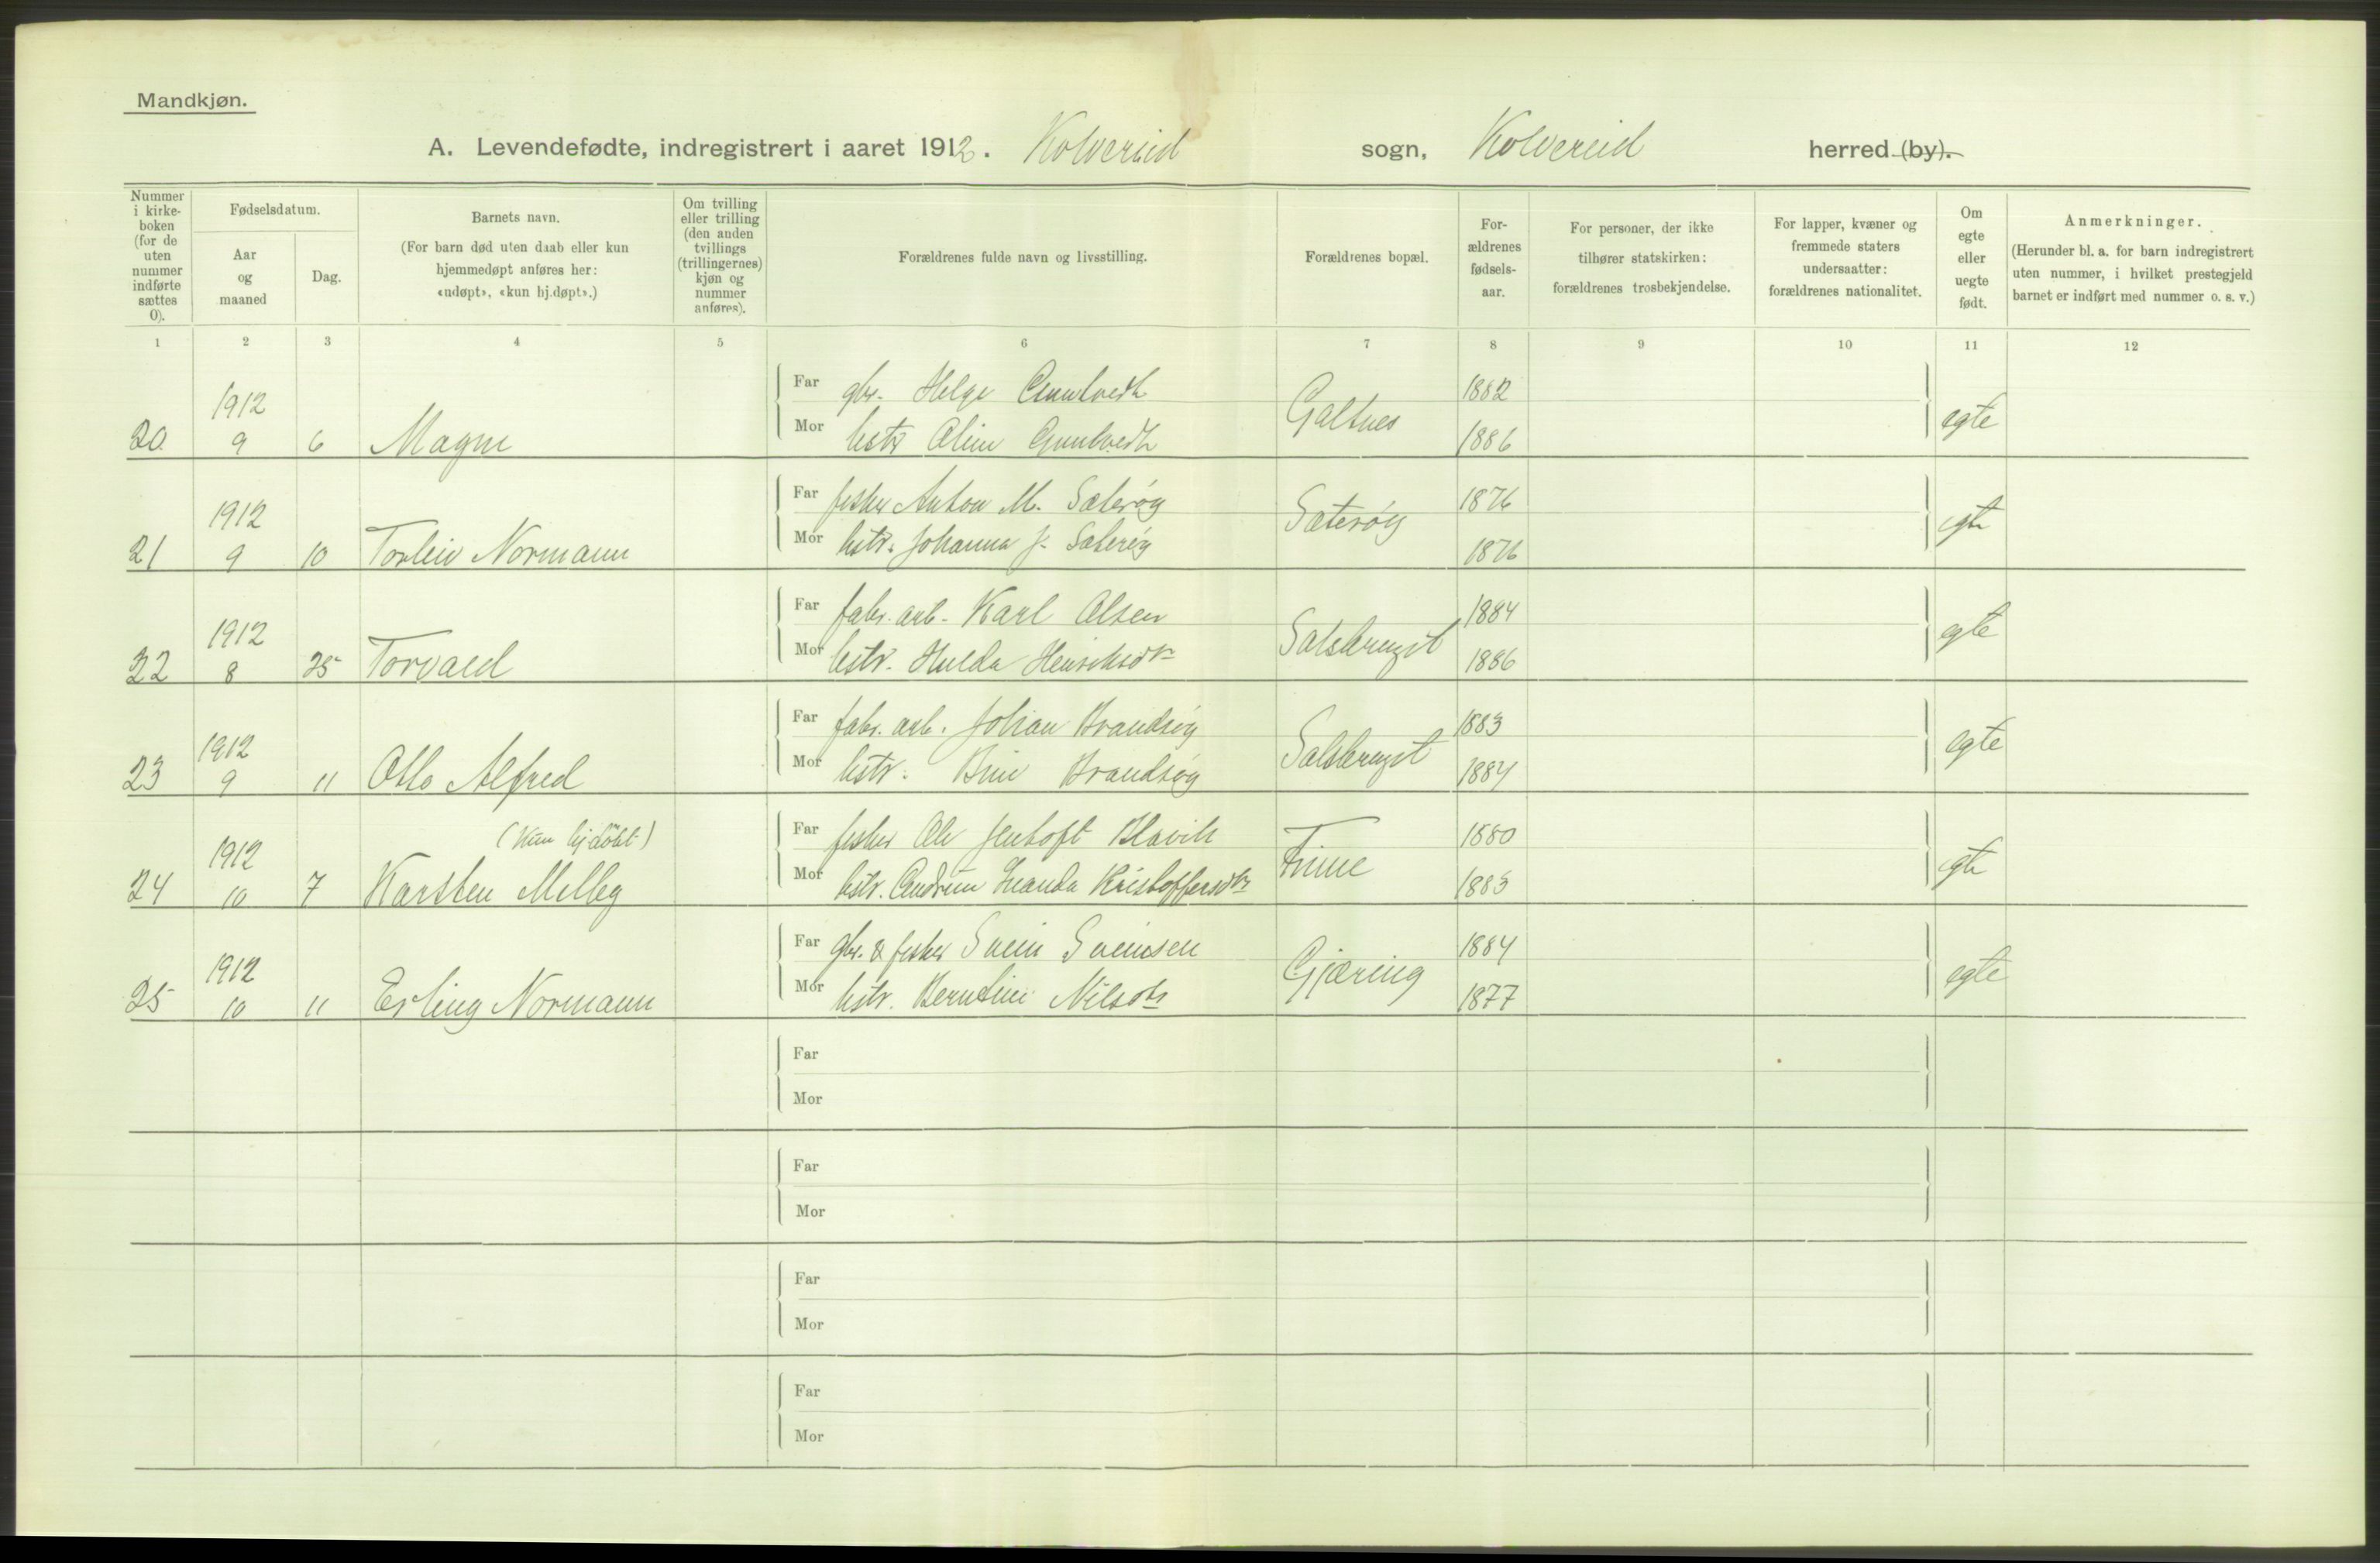 Mandkjøn.
A. Levendefødte, indregistrert i aaret 1912. Kolvereid sogn, Kolvereid herred (by).
Nummer i kirke-boken (for de uten nummer indførte sættes 0).
Fødselsdatum.
Aar og maaned
Dag.
Barnets navn.
(For barn død uten daab eller kun hjemmedøpt anføres her: «udøpt», «kun hj.døpt».)
Om tvilling eller trilling (den anden tvillings (trillingernes) kjøn og nummer anføres).
Forældrenes fulde navn og livsstilling.
Forældrenes bopæl.
For-ældrenes fødsels-aar.
For personer, der ikke tilhører statskirken: forældrenes trosbekjendelse.
For lapper, kvæner og fremmede staters undersaatter: forældrenes nationalitet.
Om egte eller uegte født.
Anmerkninger.
(Herunder bl. a. for barn indregistrert uten nummer, i hvilket prestegjeld barnet er indført med nummer o. s. v.)
1 2 3 4 5 6 7 8 9 10 11 12
Far gbr. Helge 1882
20 1912 9 6 Magne Galtnes egte
Mor hstr Oline 1886
Far fisker Anton M. Sæterøy 1876
21 1912 9 10 Torleiv Normann Sæterøy egte
Mor hstr. Johanna J. Sæterøy 1876
Far fabr. arb. Karl Olsen 1884
22 1912 8 25 Torvald Salsbruget egte
Mor hstr. Hulda Henriksdtr 1886
Far fabr. arb. Johan Brandsøy 1883
23 1912 9 11 Otto Alfred Salsbruget egte
Mor hstr. Brandsøy 1884
(Kun hjdöbt)
Far fisker Ole Jentoft 1880
24 1912 10 7 Karsten Melby Finne egte
Mor hstr. Kristoffersdtr 1883
Far gbr. & fisker Svein Sveinsen 1884
25 1912 10 11 Erling Normann Gjæring egte
Mor hstr. Berntine Nilsdtr 1877
Far
Mor
Far
Mor
Far
Mor
Far
Mor